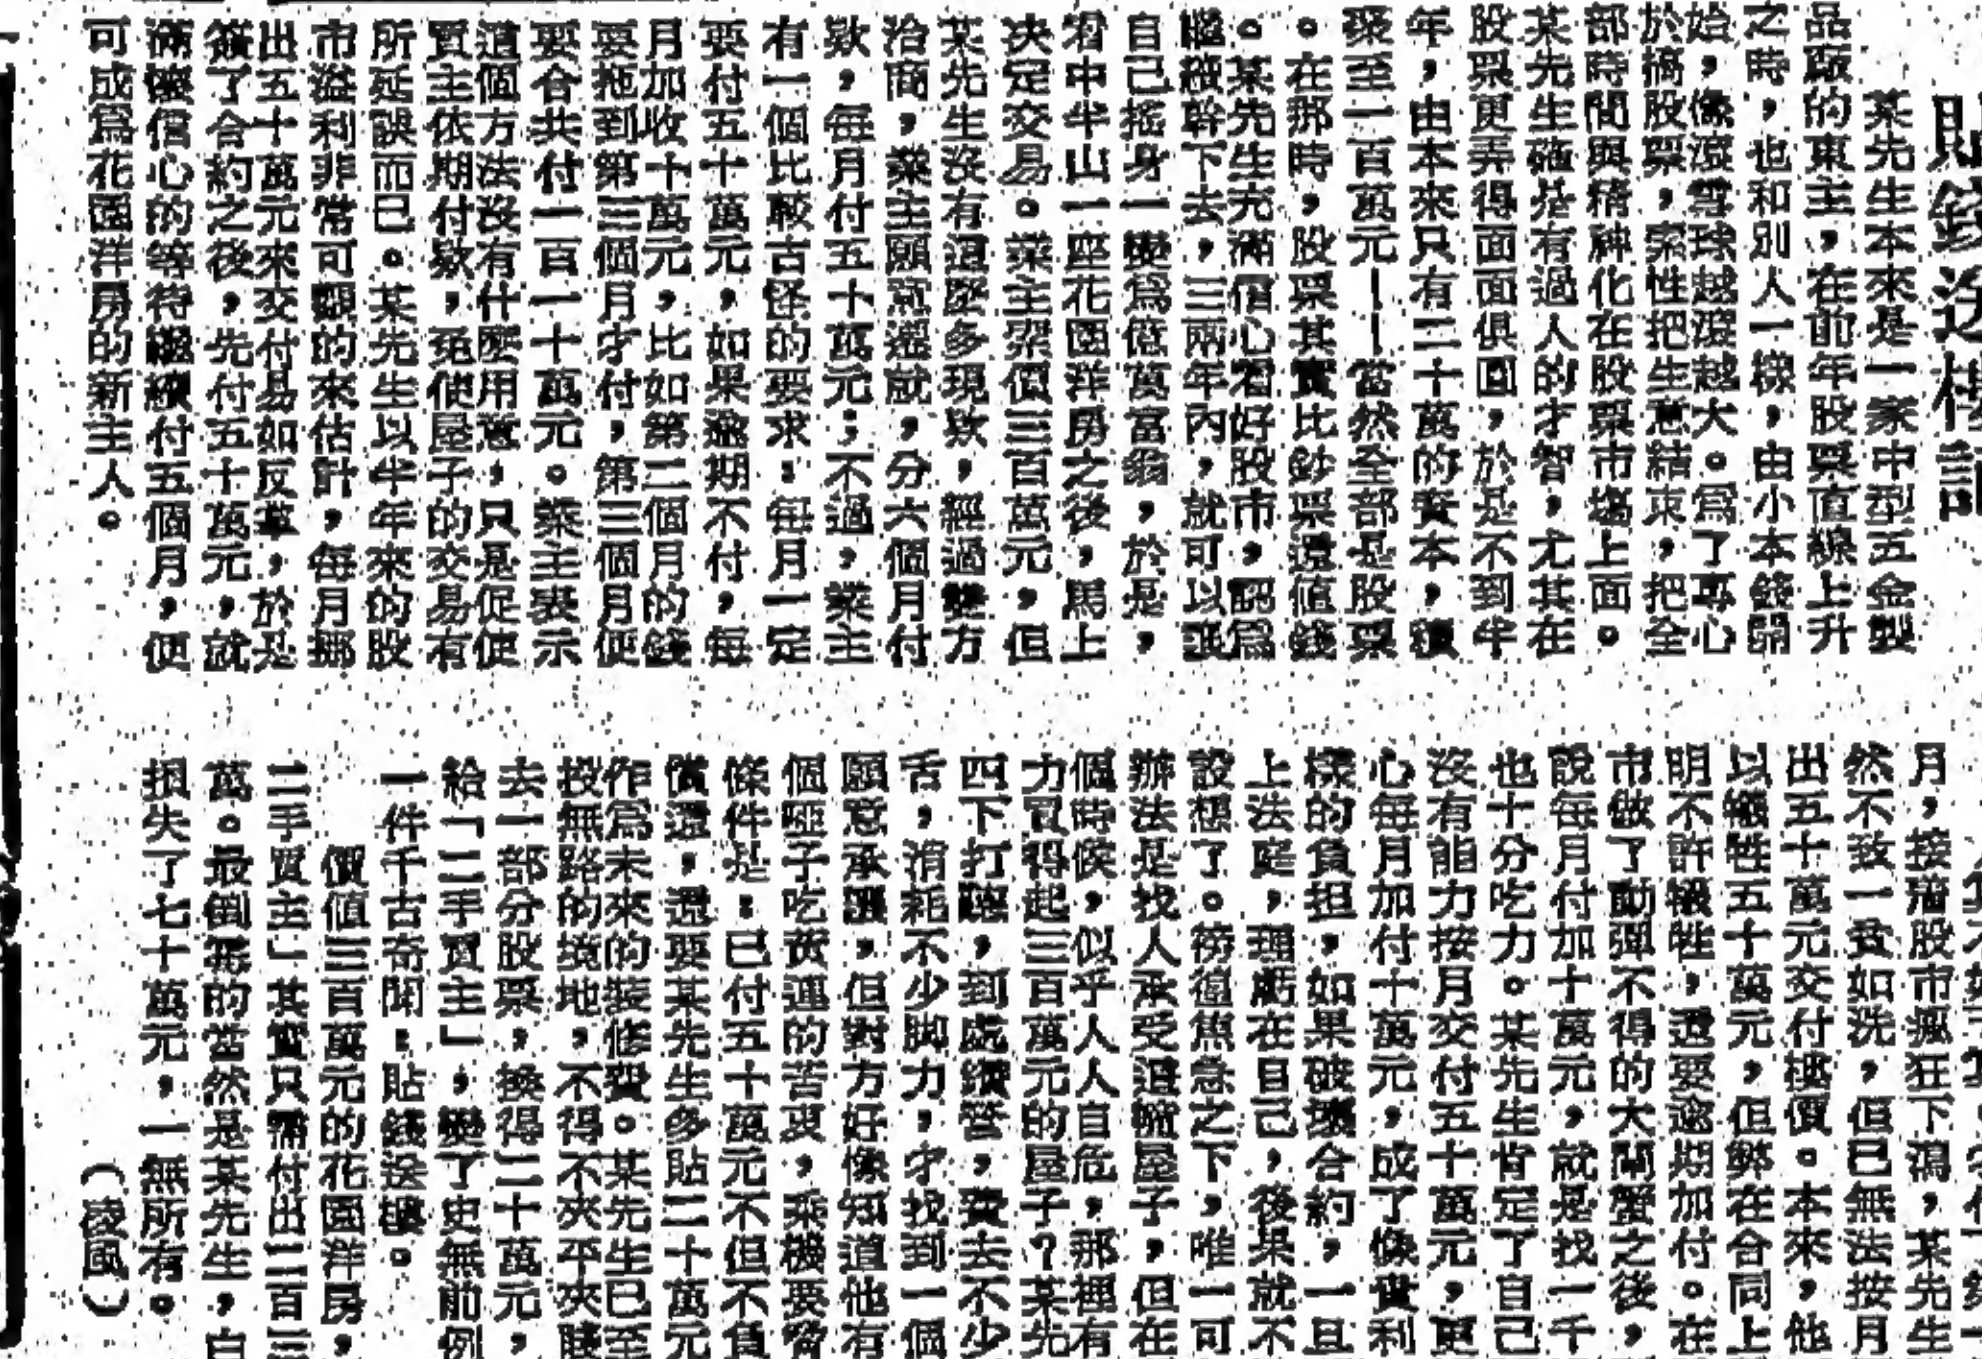 貼錢送樓記
某先生本來是一家中型五金製
品廠的東主，在前年股票直線上升
之時，也和別人一樣，由小本錢開
始，像滾雪球越滾越大。爲了專心
於搞股票，索性把生意結束，把全
部時間與精神化在股票市塲上面。
某先生確是有過人的才智，尤其在
股票更弄得面面俱圓，於是不到半
年，由本來只有二十萬的資本，積
聚至一百萬元——當然全部是股票
。在那時，股票其實比鈔票還值錢
。某先生充滿信心看好股市，認爲
繼續幹下去，三兩年內，就可以
自己搖身一變爲億萬富翁，於是，
看中半山一座花園洋房之後，馬上
决定交易。業主索價三百萬元，但
某先生沒有這麽多現欵，經過雙方
洽商，業主願意遷就，分六個月付
欵，每月付五十萬元；不過，業主
有一個比較古怪的要求：每月一定
要付五十萬元，如果逾期不付，每
月加收十萬元，比如第二個月的錢
要拖到第三個月才付，第三個月便
要合共付一百一十萬元。業主表示
這個方法沒有什麽用意，只是促使
買主依期付欵，免使屋子的交易有
所延誤而已。某先生以半年來的股
市溢利非常可觀的來估計，每月挪
出五十萬元來交付易如反掌，於是
簽了合約之後，先付五十萬元，就
滿懷信心的等待繼續付五個月，便
可成爲花園洋房的新主人。
月，接着股市瘋狂下瀉，某先生
然不致一貧如洗，但已無法按月
出五十萬元交付樓價。本來，他
以犧牲五十萬元，但弊在合同上
明不許犧牲，還要逾期加付。在
市做了動彈不得的大閘蟹之後，
說每月付加十萬元，就是找一千
也十分吃力。某先生肯定了自己
沒有能力按月交付五十萬元，更
心每月加付十萬元，成了像貴利
樣的負担，如果破壞合約，一旦
上法庭，理虧在自己，後果就不
設想了。徬徨焦急之下，唯一可
辦法是找人承受這幢屋子，但在
個時候，似乎人人自危，那裡有
力買得起三百萬元的屋子？某先
四下打聽，到處鑽營，費去不少
舌，消耗不少脚力，才找到一個
願意承讓，但對方好像知道他有
個啞子吃黃連的苦衷，乘機要脅
條件是：已付五十萬元不但不負
償還，還要某先生多貼二十萬元
作爲未來的裝修費。某先生已至
投無路的境地，不得不夾平夾賤
去一部分股票，換得二十萬元，
給「二手買主」，變了史無前例
一件千古奇聞：貼錢送樓。
價值三百萬元的花園洋房，
二手買主」其實只需付出二百三
萬。最倒霉的當然是某先生，白
損失了七十萬元，一無所有。
（凌風）